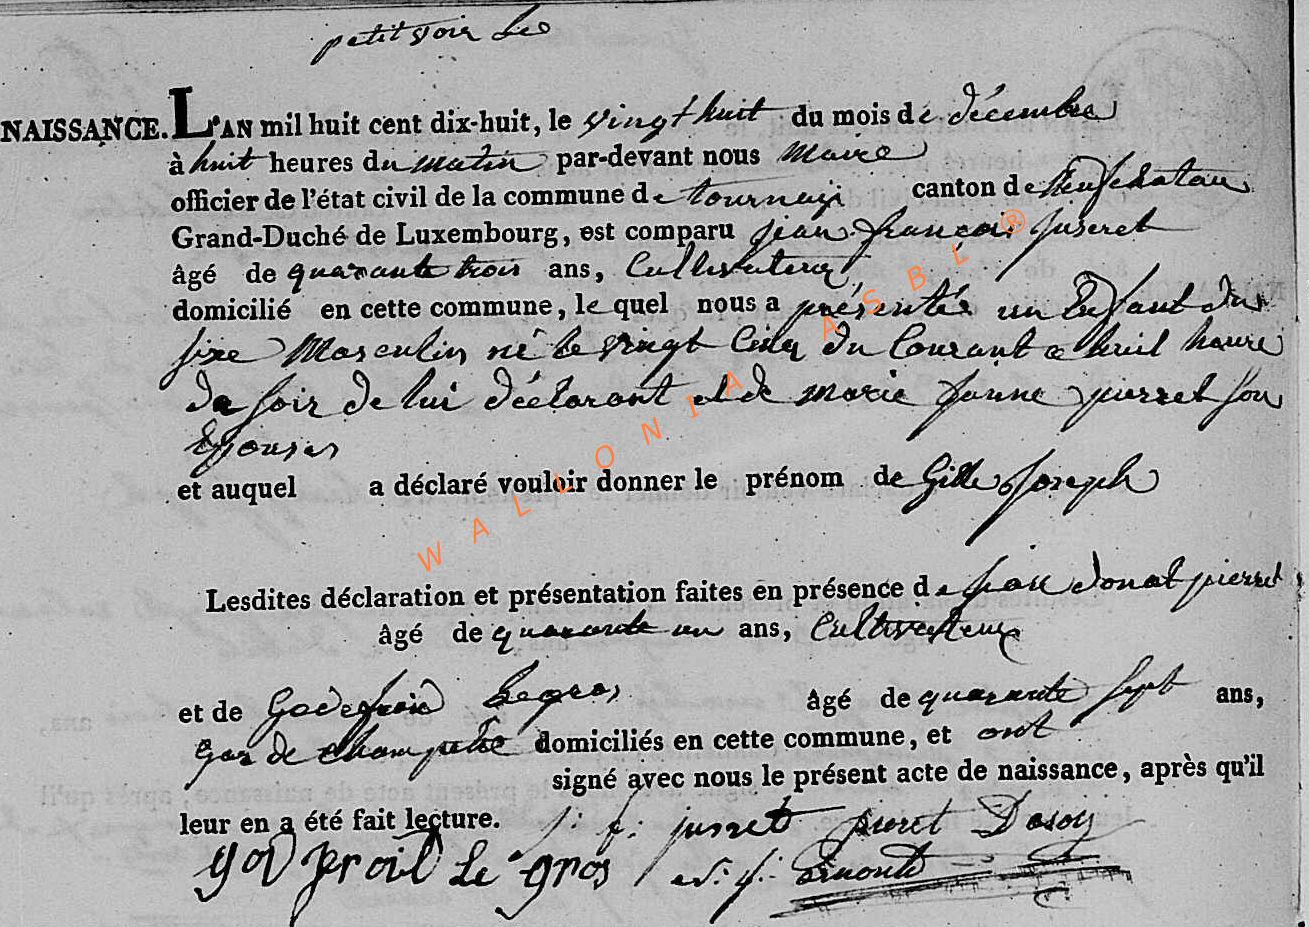 petitvoir Leo
NAISSANCE. L'AN mil huit cent dix-huit, le vingt huit du mois de décembre
à huit heures du matin par-devant nous Maire
officier de l'état civil de la commune de tournay canton de Neufchatau
Grand-Duché de Luxembourg, est comparu jean françois juseret
âgé de quarante trois ans, Cultivateur
domicilié en cette commune, lequel nous a présentée un Enfant du
sixe Masculin né le vingt Cinq du Courant a huit heure
du soir de lui déclarant et de marie jeanne pierret son
Epouse
et auquel a déclaré vouloir donner le prénom de Gille Joseph
Lesdites déclaration et présentation faites en présence de jean donat pierret
âgé de quarante un ans, Cultivateur
et de Godefroid Legros âgé de quarante sept ans,
garde champetre domiciliés en cette commune, et ont
signé avec nous le présent acte de naissance, après qu'il
leur en a été fait lecture. j: f: jusret pieret Dasoij
god froid Le gros
WALLONIA ASBL ®